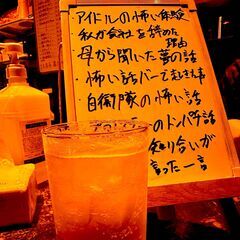 アイドルの怖い体験
私が会社を辞めた
理由
母から聞いた昔の話
怖い話バーで起きた事
自衛隊の怖い話
のドンパチ話
知り合いが
言った一言